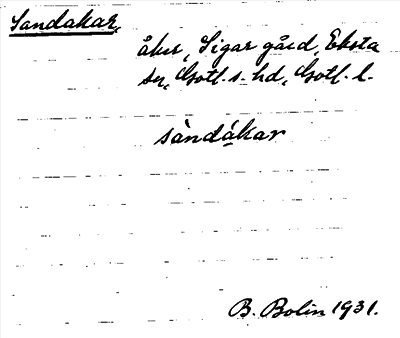 Sandakar,
åker, Sigar gård, Eksta
sn, Gotl. s. hd, Gotl. l.
sàndákar
B. Bolin 1931.